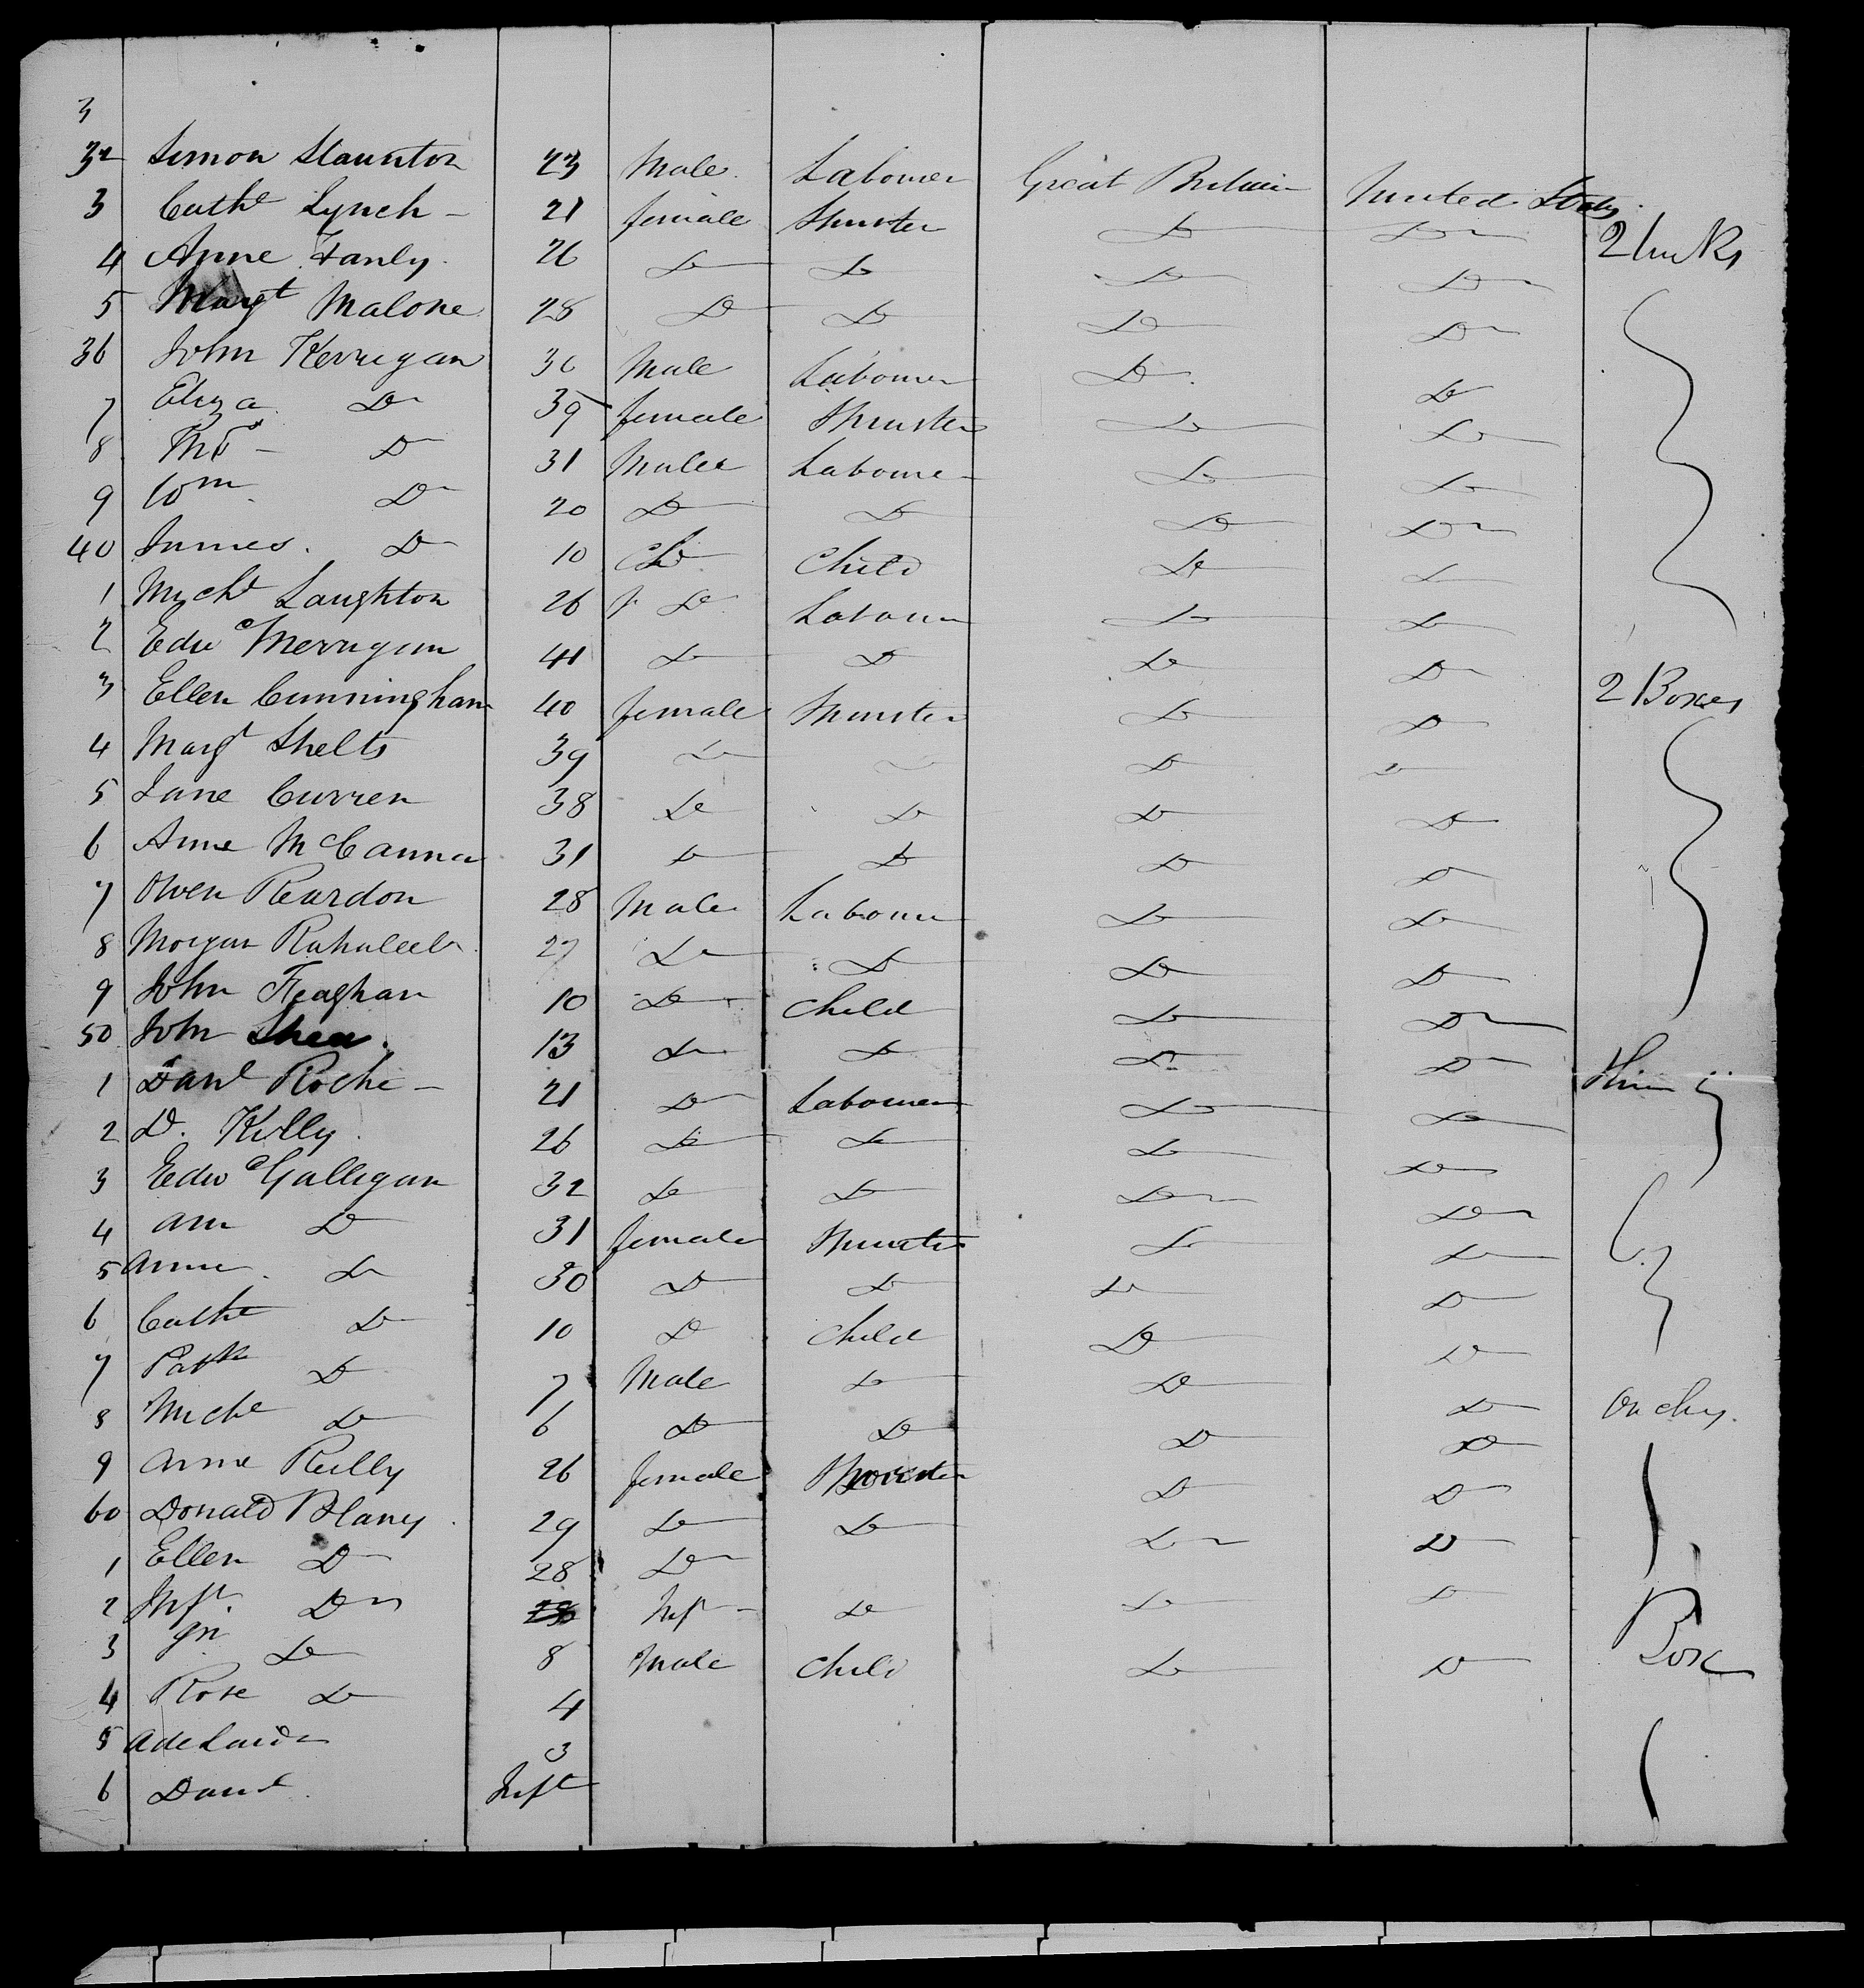 3
32 Simon Staunton 23 Male Labourer Great Britain United States
3 Cathe Lynch - 21 female Spinster Do Do 2 Trunks
4 Anne Hanly 26 Do Do Do Do
5 Margt Malone 28 Do Do Do Do
36 John Kerrigan 30 Male Labourer Do Do
7 Eliza Do 39 female Spinster Do Do
8 Thos - Do 31 Male Labourer Do Do
9 Wm Do 20 Do Do Do Do
40 James Do 10 Do Child Do Do
1 Michl Laughton 26 Do Labourer Do Do
2 Edw Merrigan 41 Do Do Do Do
3 Ellen Cunningham 40 female Spinster Do Do 2 Boxes
4 Margt Shelts 39 Do Do Do Do
5 Jane Curren 38 Do Do Do Do
6 Anne McCanna 31 Do Do Do Do
7 Owen Reardon 28 Male Labourer Do Do
8 Morgan 27 Do Do Do Do
9 John Feaghan 10 Do Child Do Do
50 John Shea 13 Do Do Do Do
1 Danl Roche - 21 Do Labourer Do Do
2 D. Kelly 26 Do Do Do Do
3 Edw Galligan 32 Do Do Do Do
4 Ann Do 31 female Spinster Do Do
5 Anne Do 30 Do Do Do Do
6 Cathe Do 10 Do Child Do Do
7 Patk Do 7 Male Do Do Do
8 Michl Do 6 Do Do Do Do
9 Anne Reilly 26 female Spinster Do Do
60 Donald Blany 29 Do Do Do Do
1 Ellen Do 28 Do
2 Inft Do Inft - Do Do Do
3 Jn Do 8 Male Child Do Do Box
4 Rose Do 4
5 Adelaide 3
6 Danl Inft